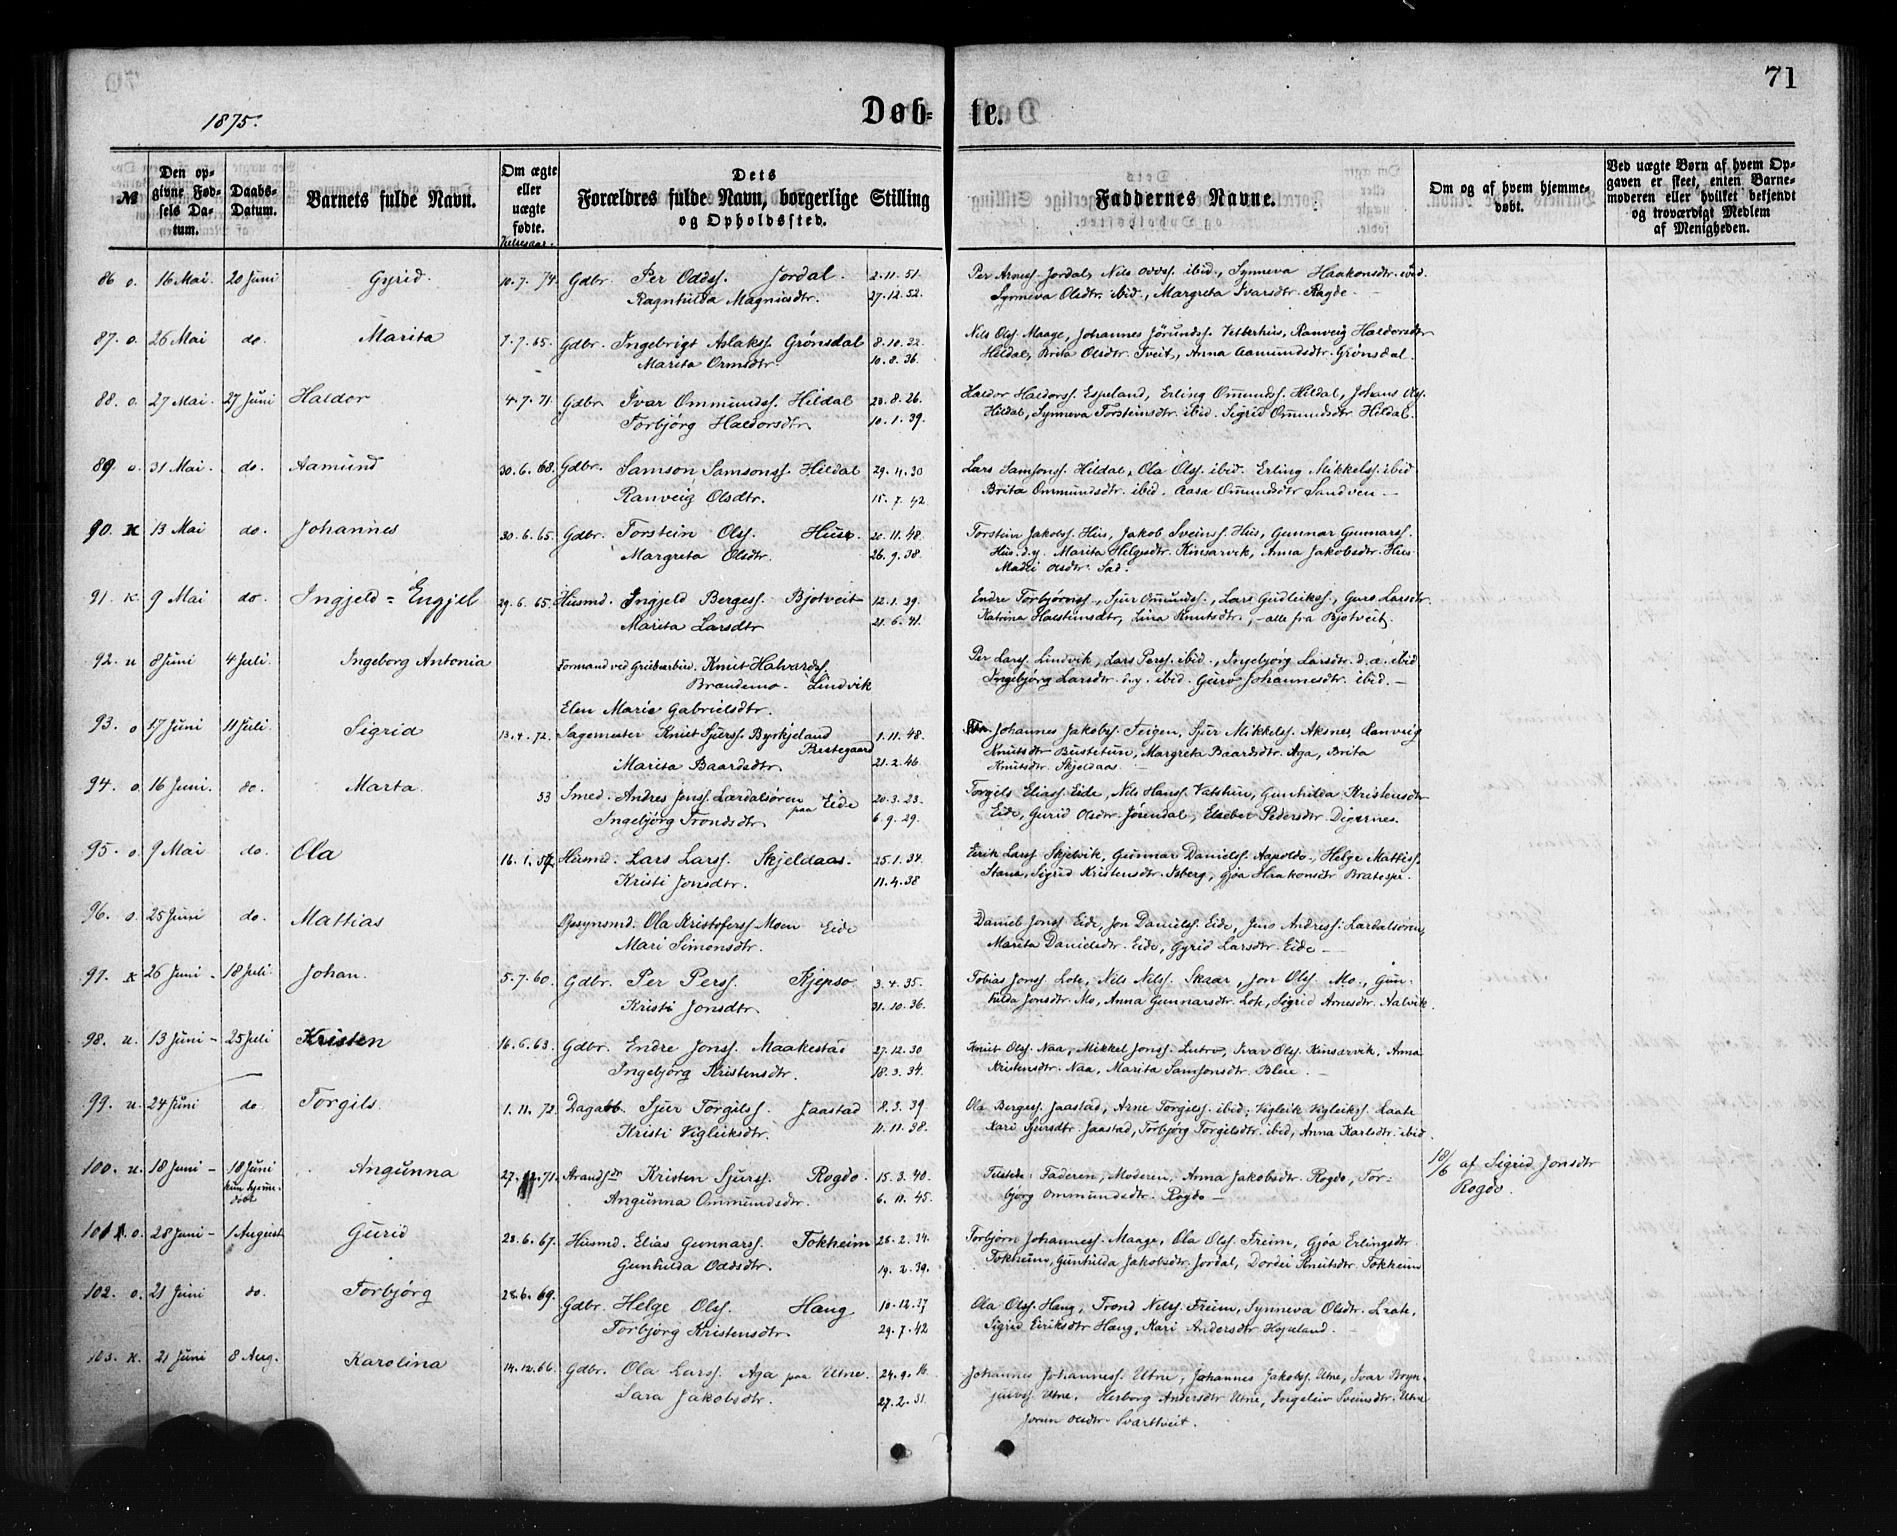 71
1875.
Døb= te.
№
Den opgivne Fødsels Datum.
Daabs-Datum.
Barnets fulde Navn.
Om ægte eller uægte fødte.
Dets Forældres fulde Navn, borgerlige Stilling og Opholdssted.
Faddernes Navne.
Om og af hvem hjemmedøbt.
Ved uægte Børn af hvem Opgaven er skeet, enten Barnemoderen eller hvilket bekjendt og troværdigt Medlem af Menigheden.
86 o. 16 Mai. 20 Juni Gyrid. 10.7.74. Gdbr. Per Odds. Jordal. 2.11.51. Per Arness. Jordal, Nils Odds. ibid., Synneva Haakonsdtr. ibid.
Ragnhilda Magnusdtr. 27.12.52. Synneva Olsdtr. ibid., Margreta Ivarsdtr. Ragde.
87. o. 26 Mai do. Marita 7.7.65. Gdbr. Ingebrigt Aslaks. Grønsdal 8.10.22. Nils Ols. Maage, Johannes Jörunds. Vetterhus, Ranveig Haldorsdtr
Marita Ormsdtr. 10.8.36. Hildal, Brita Olsdtr. Tveit, Anna Aamundsdtr. Grønsdal.
88. o. 27 Mai. 27 Juni Haldor 4.7.71. Gdbr. Ivar Ommundss. Hildal 28.8.26. Haldor Haldorss. Espeland, Erling Omunds. Hildal, Johans Ols.
Torbjørg Haldorsdtr. 10.1.39. Hildal, Synneva Torsteinsdtr. ibid. Sigrid Omundsdtr. Hildal.
89. o. 31 Mai. do. Aamund 30.6.68. Gdbr. Samson Samsonss. Hildal 29.11.30 Lars Samsonss. Hildal, Ola Olss. ibid. Erling Mikkelss. ibid
Ranveig Olsdtr. 15.7.42 Brita Ommundsdtr. ibid. Aasa Omundsdtr Sandven
90. K 13 Mai do. Johannes 30.6.65. Gdbr. Torstein Ols. Huse. 20.11.48. Torstein Jakobss. Hus, Jakob Sveinss. Hus, Gunnar Gunnarss.
Margreta Olsdtr. 26.9.38. Hus d.y. Marita Helgesdtr. Kinsarvik, Anna Jakobsdtr. Hus
91. K 9 Mai do. Ingjeld = Engjel 29.6.65. Husmd. Ingjeld Bergess. Bjotveit 12.1.29. Endre Torbjörnss., Sjur Omundss., Lars Gudleikss., Guro Larsdtr.
Marita Larsdtr 21.6.41. Katrina Halsteinsdtr, Lina Knutsdtr., - alle fra Bjotveit.
92. u 8 Juni 4 Juli. Ingeborg Antonia Formand ved Grubearbeid. Knut Halvardss. Per Larss. Lindvik, Lars Perss. ibid., Ingebjörg Larsdtr. d.æ. ibid
Brandemo. Lindvik Ingebjörg Larsdtr. d.y. ibid. Guro Johannesdtr. ibid.
Elen Marie Gabrielsdtr.
93. o 17 Juni 11 Juli. Sigrid 13.4.72. Sagemester Knut Sjurss. Byrkjeland 1.11.48. Johannes Jakobss. Teigen, Sjur Mikkelss. Aksnes, Ranveig
Prestegaard Knutsdtr Bustetun, Margreta Baardsdtr. Aga, Brita
Marita Baardsdtr. 21.2.46. Knutsdtr. Skjeldaas
94. o. 16 Juni. do. Marta. 53 Smed. Andres Jenss. Lærdalsören paa Eide 20.3.23. Torgils Eliass. Eide, Nils Hanss. Vatshun, Gunhilda Kristensdtr
Ingebjörg Trondsdtr. 6.9.29. Eide, Gurid Olsdtr. Jösendal, Elseber Pedersdtr. Digernes.
95. o. 9 Mai do. Ola 16.1.57. Husmd. Lars Larss. Skjeldaas. 25.1.34. Eirik Larss. Skjelvik, Gunnar Danielss. Aapoldo, Helge Mattiss.
Kristi Jonsdtr. 11.4.38 Stana, Sigrid Kristensdtr. Isberg, Gjøa Haakonsdtr Bratespe.
96. o. 25 Juni do. Mattias Opsynsmd. Ola Kristoferss Moen Eide Daniel Jonss. Eide, Jon Danielss. Eide, Jens Andress. Lærdalsören,
Mari Simonsdtr. Marita Danielsdtr. Eide, Gyrid Larsdtr. Eide
97. K 26 Juni - 18 Juli. Johan. 5.7.60. Gdbr. Per Perss. Kjepso 3.4.35. Tobias Jonss Lote, Nils Nilss. Skaar, Jon Olss. Mo., Gun-
Kristi Jonsdtr. 31.10.36. hilda Jonsdtr. Mo, Anna Gunnarsdtr. Lote, Sigrid Arnesdtr. Aalvik.
98. u. 13 Juni - 25 Juli Kristen 16.6.63. Gdbr. Endre Jonss. Maakestad 27.12.30 Knut Olss. Naa, Mikkel Jonss. Lutro, Ivar Olss. Kinsarvik, Anna
Ingebjörg Kristensdtr. 18.3.34. Kristensdtr. Naa, Marita Samsonsdtr. Bleie.
99. u. 24 Juni do. Torgils. 1.11.72. Dagarb. Sjur Torgilss. Jaastad 8.3.39 Ola Bergess. Jaastad, Arne Torgilss. ibid, Vigleik Vigleikss. Laate
Kristi Vigleiksdtr. 11.11.38. Kari Sjursdtr. Jaastad, Torbjörg Torgilsdtr. ibid, Anna Karlsdtr. ibid.
100. u. 18 Juni - 18 Juni kun hjemmedöbt Angunna 27.12.71. Strands. Kristen Sjurss. Rogdo. 15.3.40. Tilstede: Faderen, Moderen, Anna Jakobsdtr. Rogdo, Tor- 18/6 af Sigrid Jonsdtr Rogdo.
Angunna Ommundsdtr. 6.11.45. björg Ommundsdtr. Rogdo
101. o. 28 Juni - 1 August Gurid 28.6.67. Husmd. Elias Gunnarss. Tokheim 26.2.34. Torbjörn Johanness. Maage, Ola Olss. Freim, Gjøa Erlingsdtr.
Gunhilda Oddsdtr. 19.2.39. Tokheim, Gunhilda Jakobsdtr. Jordal, Dordei Knutsdtr. Tokheim
102. o. 21 Juni do. Torbjørg 28.6.69. Gdbr. Helge Olss. Haug 10.12.37 Ola Olss. Haug, Trond Nilss. Freim, Synneva Olsdtr. Laate,
Torbjørg Kristensdtr. 29.7.42 Sigrid Eiriksdtr Haug, Kari Andersdtr Hopeland.
103. K. 21 Juni 8 Aug. Karolina 14.12.66. Gdbr. Ola Larss. Aga paa Utne. 24.9.16 Johannes Johanness. Utne, Johannes Jakobss. Utne, Ivar Bryn-
Sara Jakobsdtr. 27.2.31. julvss. Utne. Herborg Andersdtr. Utne, Torgeliv Sveinsdtr. Utne
Jorun Olsdtr. Svarttveit.